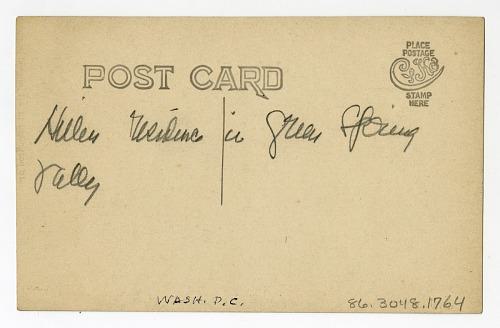 PLACE
POSTAGE
STAMP
HERE
POST CARD
residence in Green Spring
Valley
WASH. D.C.
86.3048.1764